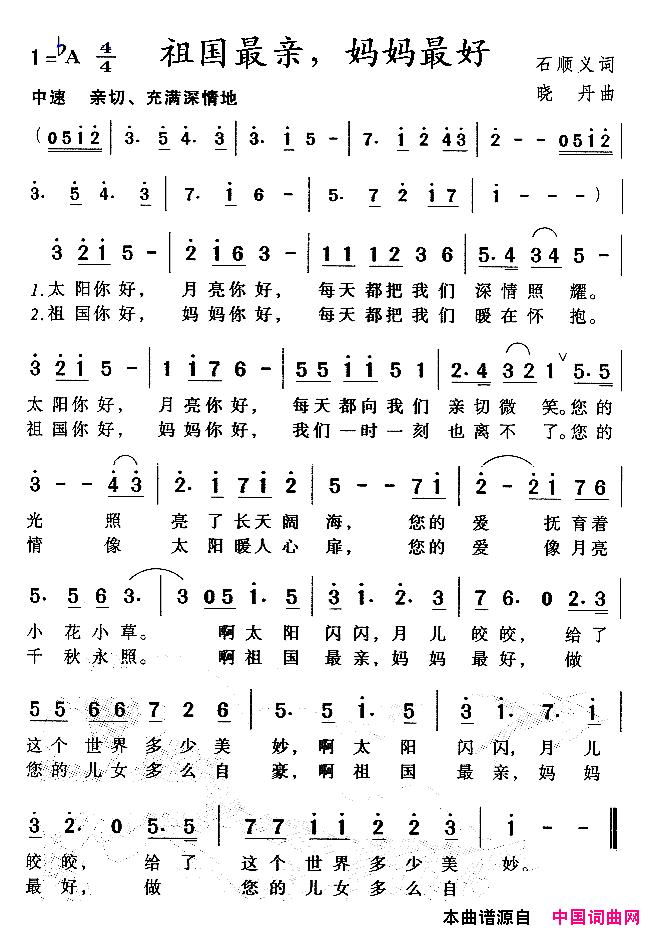 1=♭A 4/4 祖国最亲，妈妈最好
石顺义词
中速 亲切、充满深情地
晓 丹曲
(0512 | 3· 5 4· 3 | 3· 1 5 - | 7· 1 2 43 | 2 - - 0512 |
3· 5 4· 3 | 7· 1 6 - | 5· 7 2 17 | 1 - - ) |
3 21 5 - | 2 16 3 - | 11 12 36 | 5·4 34 5 - |
1.太阳你好， 月亮你好， 每天都把我们 深情照 耀。
2.祖国你好， 妈妈你好， 每天都把我们 暖在怀 抱。
3 21 5 - | 1 17 6 - | 55 11 51 | 2·4 32 1 ∨ 5·5 |
太阳你好， 月亮你好， 每天都向我们 亲切微 笑。您的
祖国你好， 妈妈你好， 我们一时一刻 也离不 了。您的
3 - - 43 | 2· 17 12 | 5 - - 71 | 2 - 21 76 |
光 照 亮了长天阔 海， 您的 爱 抚育着
情 像 太阳暖人心 扉， 您的 爱 像月亮
5· 5 6 3· | 3 05 1· 5 | 3 1· 2· 3 | 76· 0 2·3 |
小花小草。 啊太阳 闪闪，月儿 皎皎， 给了
千秋永照。 啊祖国 最亲，妈妈 最好， 做
55 66 72 6 | 5· 5 1· 5 | 3 1· 7· 2 |
这个世界多少美 妙，啊太阳 闪闪，月儿
您的儿女多么自 豪，啊祖国 最亲，妈妈
3 2· 0 5·5 | 77 11 22 3 | 1 - - - ‖
皎皎， 给了 这个世界多少美 妙。
最好， 做 您的儿女多么自
本曲谱源自 中国词曲网